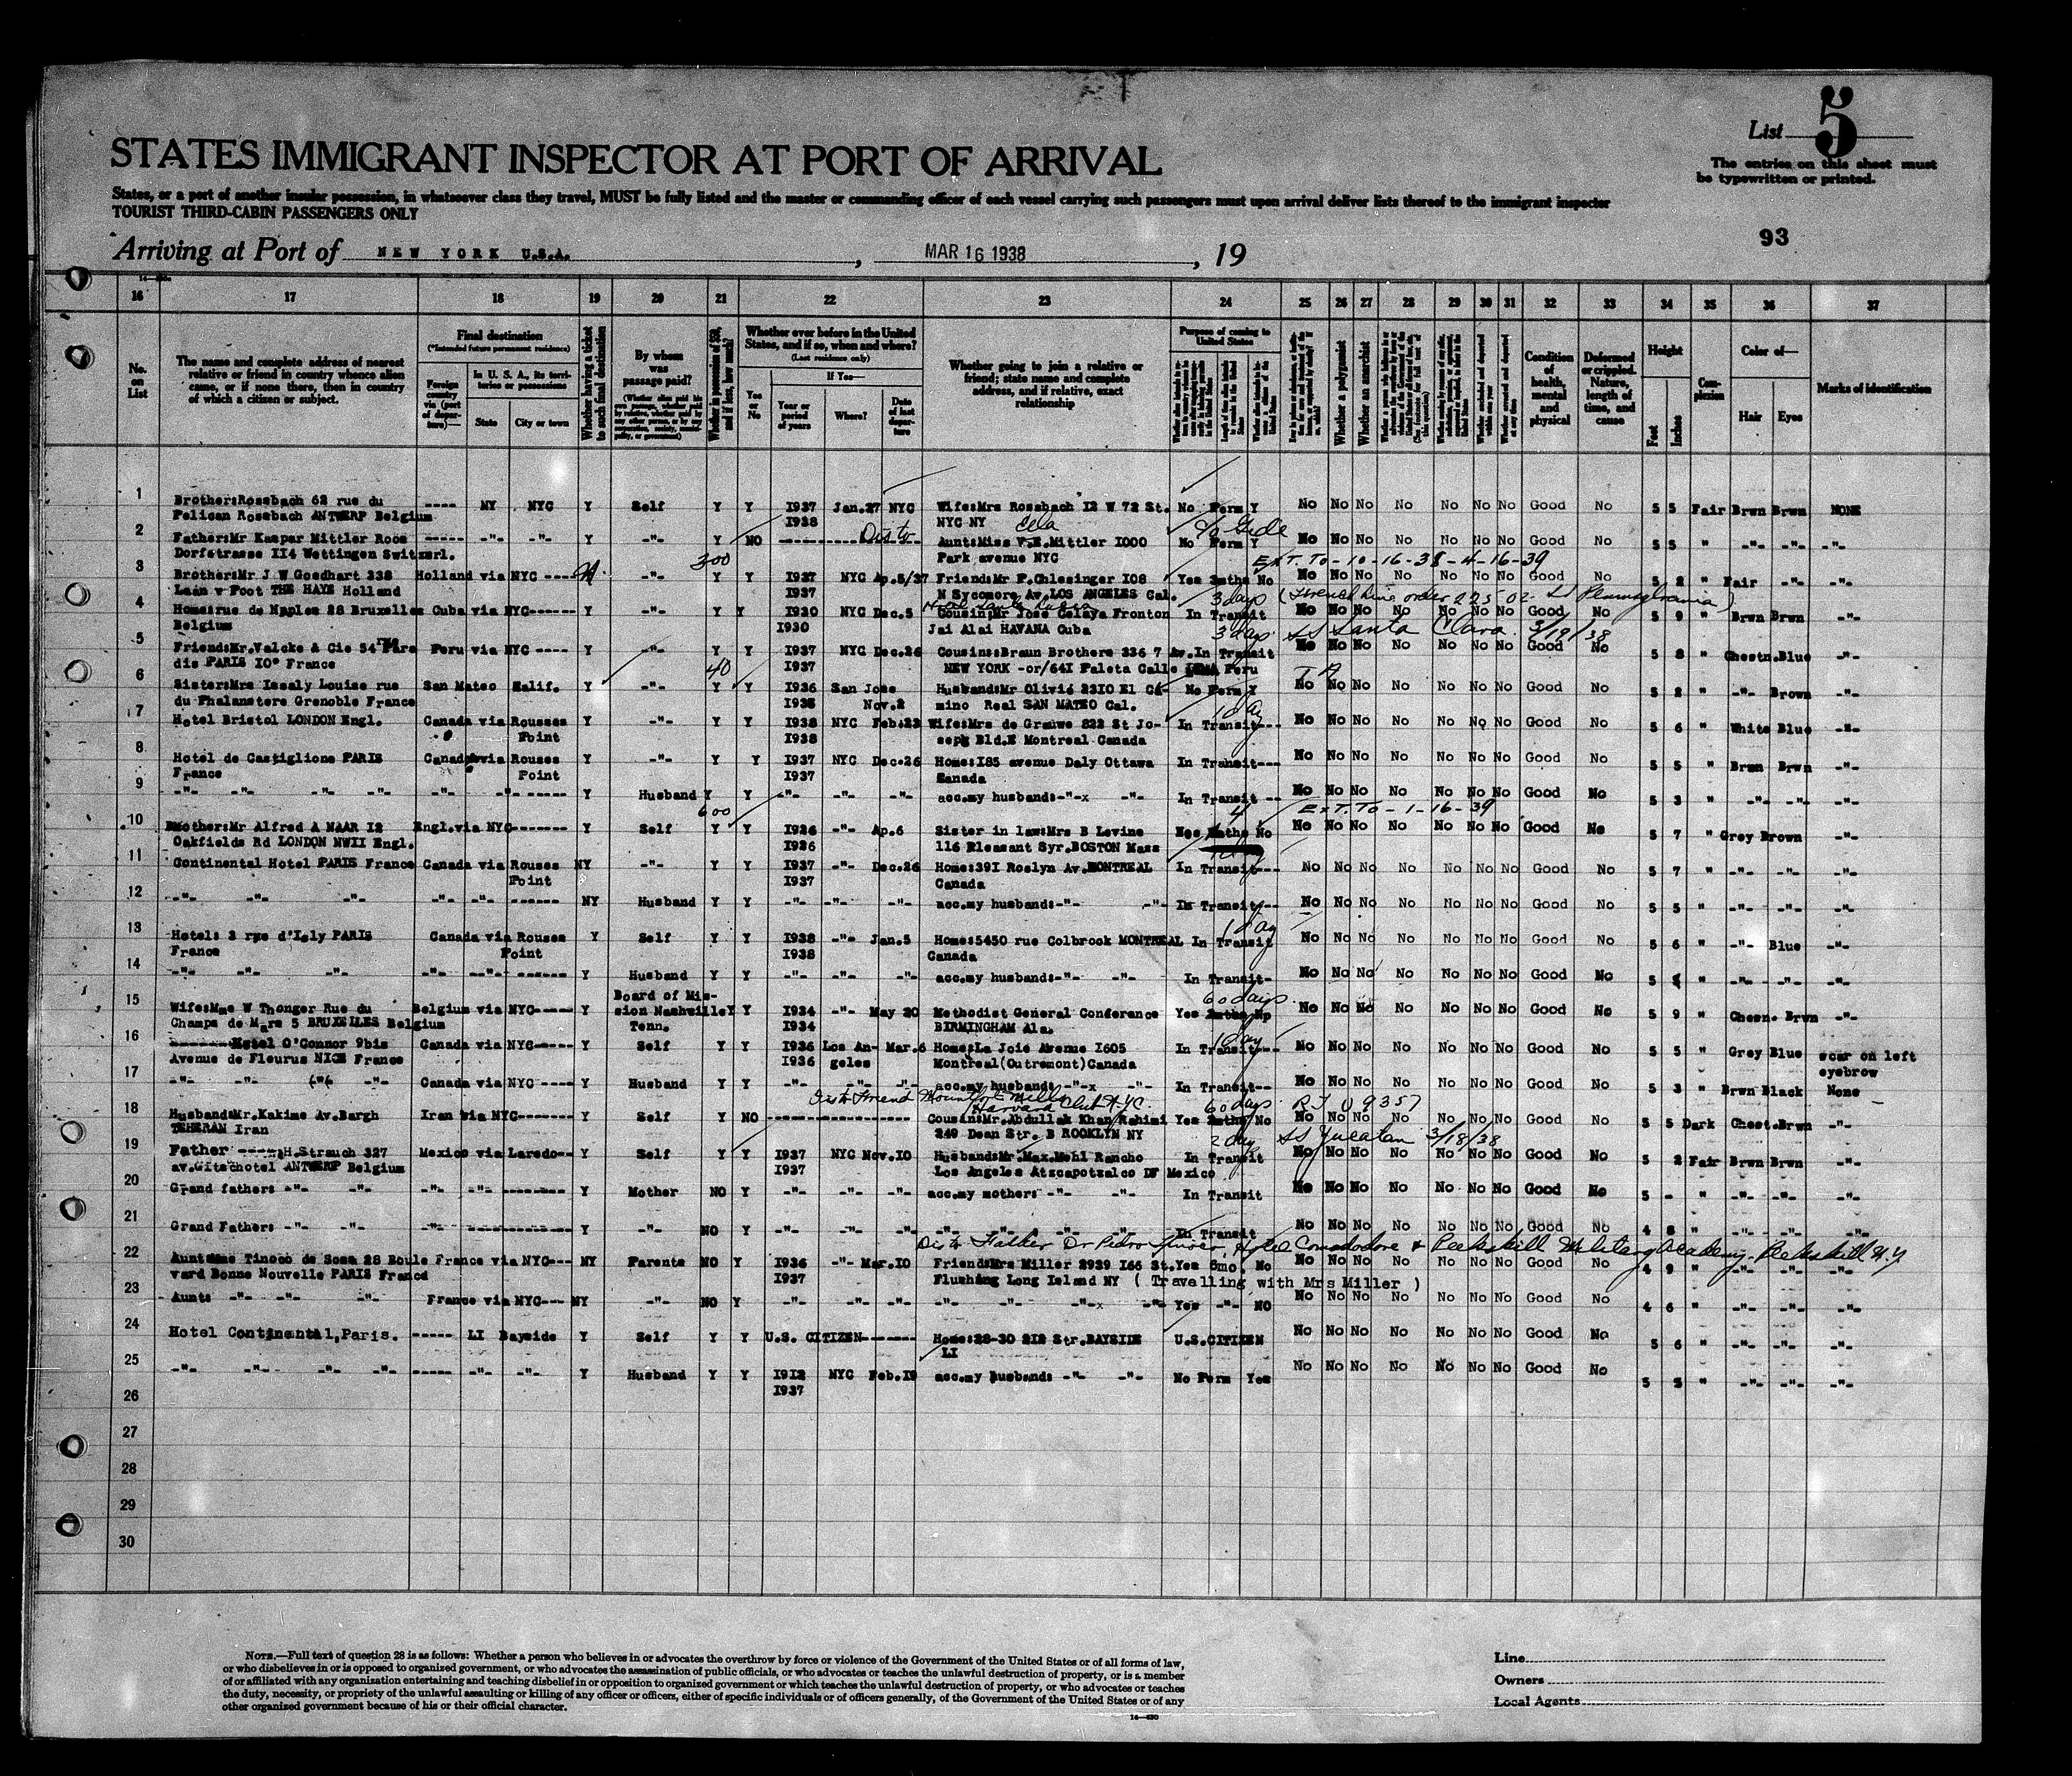 List 5
The entries on this sheet must
be typewritten or printed.
STATES IMMIGRANT INSPECTOR AT PORT OF ARRIVAL
States, or a port of another insular possession, in whatsoever class they travel, MUST be fully listed and the master or commanding officer of each vessel carrying such passengers must upon arrival deliver lists thereof to the immigrant inspector
TOURIST THIRD-CABIN PASSENGERS ONLY
93
Arriving at Port of NEW YORK U.S.A. , MAR 16 1938 , 19
16 17 18 19 20 21 22 23 24 25 26 27 28 29 30 31 32 33 34 35 36 37
No. on List
The name and complete address of nearest relative or friend in country whence alien came, or if none there, then in country of which a citizen or subject.
Final destination
(*Intended future permanent residence)
Foreign country via (port of departure)—
In U. S. A., its territories or possessions
State
City or town
Whether having a ticket to such final destination
By whom was passage paid?
Whether in possession of $50, and if less, how much?
Whether ever before in the United States, and if so, when and where?
(Last residence only)
Yes or No
If Yes—
Year or period of years
Where?
Date of last departure
Whether going to join a relative or friend; state name and complete address, and if relative, exact relationship
Purpose of coming to United States
Whether a polygamist
Whether an anarchist
Condition of health, mental and physical
Deformed or crippled. Nature, length of time, and cause
Height
Feet
Inches
Complexion
Color of—
Hair
Eyes
Marks of identification
1 Brother:Rossbach 62 rue du ---- NY NYC Y Self Y Y 1937 Jan.27 NYC Wife:Mrs Rossbach 12 W 72 St. No Perm Y No No No No No No No Good No 5 5 Fair Brwn Brwn NONE
Pelican Rossbach ANTWERP Belgium 1938 NYC NY
2 Father:Mr Kaspar Mittler Roos ----- -"- -"- Y -"- Y NO Aunt:Miss V.E.Mittler 1000 No Perm Y No No No No No No No Good No 5 5 " -"- -"- -"-
Dorfstrasse 114 Wettingen Switzerl. Park avenue NYC
300 Ext. To-10-16-38-4-16-39
3 Brother:Mr J W Goedhart 238 Holland via NYC ---- -"- Y Y 1937 NYC Ap.5/37 Friend:Mr F.Chlesinger 108 Yes 3mths No No No No No No No No Good No 5 2 " Fair -"- -"-
Laan v Poot THE HAYE Holland 1937 N Sycomore Av.LOS ANGELES Cal.
3 days (French Line order 22502 Pennsylvania)
4 Home:rue de Naples 28 Bruxelles Cuba via NYC------ Y -"- Y Y 1930 NYC Dec.5 Cousin:Mr Jose Celaya Fronton In Transit No No No No No No No Good No 5 9 " Brwn Brwn
Belgium 1930 Jai Alai HAVANA Cuba
3 days SS Santa Clara 3/19/38
5 Friend:Mr.Valcke & Cie 54 rue Para Peru via NYC ---- Y -"- Y Y 1937 NYC Dec.26 Cousins:Braun Brothers 236 7 Av.In Transit No No No No No No No Good No 5 8 " Chestn.Blue -"-
dis PARIS 10° France 1937 NEW YORK -or/641 Paleta Calle LIMA Peru
40
6 Sister:Mrs Issaly Louise rue San Mateo Kalif. Y -"- Y Y 1936 San Jose Husband:Mr Olivié 2310 El Ca- No Perm Y No No No No No No No Good No 5 2 " -"- Brown -"-
du Phalanstere Grenoble France 1936 Nov.2 mino Real SAN MATEO Cal.
1 day
7 Hotel Bristol LONDON Engl. Canada via Rouses Y -"- Y Y 1938 NYC Feb:23 Wife:Mrs de Grauwe 822 St Jo- In Transit--- No No No No No No No Good No 5 6 " White Blue -"-
Point 1938 seph Bld.E Montreal Canada
8 Hotel de Castiglione PARIS Canada via Rouses Y -"- Y Y 1937 NYC Dec.26 Home:185 avenue Daly Ottawa In Transit--- No No No No No No No Good No 5 5 " Brwn Brwn -"-
France Point 1937 Canada
9 -"- -"- -"- -"- -"- -"- ------ Y Husband Y Y -"- -"- -"- acc.my husband:-"-x -"- In Transit -- No No No No No No No Good No 5 3 " -"- -"- -"-
600 Ext. To-1-16-39
10 Brother:Mr Alfred A NAAR 12 Engl.via NYC------- Y Self Y Y 1926 -"- Ap.6 Sister in law:Mrs B Levine No No No No No No No No Good No 5 7 " Grey Brown -"-
Oakfields Rd LONDON NWII Engl. 1926 116 Pleasant Syr.BOSTON Mass
11 Continental Hotel PARIS France Canada via Rouses NY -"- Y Y 1937 -"- Dec.26 Home:391 Roslyn Av.MONTREAL In Transit--- No No No No No No No Good No 5 7 " -"- -"- -"-
Point 1937 Canada
12 -"- -"- -"- -"- -"- ------ NY Husband Y Y -"- -"- -"- acc.my husband:-"- -"- In Transit-- No No No No No No No Good No 5 5 " -"- -"- -"-
1 day
13 Hotel: 2 rue d'Isly PARIS Canada via Rouses Y Self Y Y 1938 -"- Jan.5 Home:5450 rue Colbrook MONTREAL In Transit No No No No No No No Good No 5 6 " -"- Blue -"-
France Point 1938 Canada
14 -"- -"- -"- -"- --"- ------ Y Husband Y Y -"- -"- -"- acc.my husband:-"- -"- In Transit- No No No No No No No Good No 5 " -"- -"- -"-
Board of Mis- 60 days
15 Wife:Mme W Thonger Rue du Belgium via NYC---- Y sion Nashville Y Y 1934 -"- May 20 Methodist General Conference Yes No No No No No No No Good No 5 9 " Chesn. Brwn -"-
Champs de Mars 5 BRUXELLES Belgium Tenn. 1934 BIRMINGHAM Ala.
1 day
16 -------Hotel O'Connor 9bis Canada via NYC----- Y Self Y Y 1936 Los An- Mar.6 Home:La Joie Avenue 1605 In Transit--- No No No No No No No Good No 5 5 " Grey Blue scar on left
Avenue de Fleurus NICE France 1936 geles Montreal(Outremont)Canada eyebrow
17 -"- -"- -"- -"- Canada via NYC ---- Y Husband Y Y -"- -"- -"- acc.my husband: -"-x -"- In Transit-- No No No No No No No Good No 5 3 " Brwn Black None
Friend Mountfort Mills
Harvard Club N.Y.C. 60 days
18 Husband:Mr.Kakime Av.Bargh Iran via NYC------- Y Self Y NO ------------------ Cousin:Mr.Abdullah Khan Rahimi Yes No No No No No No No No Good No 5 5 Dark Chest.Brwn -"-
TEHERAN Iran 249 Dean Str. B ROOKLYN NY
2 day SS Yucatan 3/18/38
19 Father ----:H.Strauch 327 Mexico via Laredo-- Y Self Y Y 1937 NYC Nov.10 Husband:Mr.Max.Mehl Rancho In Transit No No No No No No No Good No 5 2 Fair Brwn Brwn -"-
av.Gitschotel ANTWERP Belgium 1937 Los Angeles Atzcapotzalco DF Mexico
20 Grand father: -"- -"- -"- -"- -------- Y Mother NO Y -"- -"- -"- acc.my mother: -"- -"- In Transit No No No No No No No Good No 5 - " -"- -"- -"-
21 Grand Father: -"- -"- -"- ------------- Y -"- NO Y -"- -"- -"- -"- -"- In Transit No No No No No No No Good No 4 8 " -"- -"- -"-
Father Dr Pedro Hotel Comodore & Peekskill Military Academy. Peekskill N.Y
22 Aunt:Mme Tinoco de Sosa 28 Boule France via NYC--- NY Parents NO Y 1936 -"- Mar.10 Friend:Mrs Miller 2929 166 St.Yes 6mo. No No No No No No No No Good No 4 9 " -"- -"- -"-
vard Bonne Nouvelle PARIS France 1937 Flushing Long Island NY ( Travelling with Mrs Miller )
23 Aunt: -"- -"- -"- France via NYC--- NY -"- NO Y -"- -"- -"- -"- -"- -"-x -"- Yes -"- NO No No No No No No No Good No 4 6 " -"- -"- -"-
24 Hotel Continental,Paris. ----- LI Bayside Y Self Y Y U.S. CITIZEN------- Home:28-30 212 Str.BAYSIDE U.S.CITIZEN No No No No No No No Good No 5 6 " -"- -"- -"-
LI
25 -"- -"- -"- -"- ----- -"- -"- Y Husband Y Y 1912 NYC Feb.19 acc.my husband: -"- -"- No Perm Yes No No No No No No No Good No 5 5 " -"- -"- -"-
1937
26
27
28
29
30
NOTE.—Full text of question 28 is as follows: Whether a person who believes in or advocates the overthrow by force or violence of the Government of the United States or of all forms of law,
or who disbelieves in or is opposed to organized government, or who advocates the assassination of public officials, or who advocates or teaches the unlawful destruction of property, or is a member
of or affiliated with any organization entertaining and teaching disbelief in or opposition to organized government or which teaches the unlawful destruction of property, or who advocates or teaches
the duty, necessity, or propriety of the unlawful assaulting or killing of any officer or officers, either of specific individuals or of officers generally, of the Government of the United States or of any
other organized government because of his or their official character.
Line
Owners
Local Agents